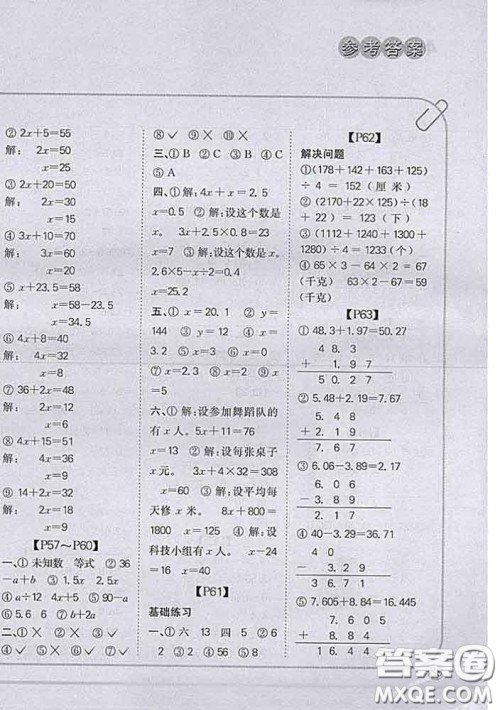 参考答案
② 2x+5=55
解： 2x=50
x=25
③ 2x+20=50
解： 2x=30
x=15
④ 3x+10=70
解： 3x=60
x=20
⑤ x+23.5=58
解： x=58-23.5
x=34.5
⑥ 8+4x=40
解： 4x=32
x=8
⑦ 2x+4=16
解： 2x=12
x=6
⑧ 4x+15=51
解： 4x=36
x=9
⑨ 14+2x=32
解： 2x=18
x=9
【P57～P60】
一、①未知数 等式 ②36
-a+b ③1.5x 2.5x
④a÷12 4x ⑤90-a
⑥5.6 6 ⑦b+2a
二、①× ②× ③✓ ④✓
⑤✓ ⑥× ⑦✓
⑧✓ ⑨× ⑩×
三、①B ②C ③B ④C
⑤A
四、①解：4x+x=2.5
x=0.5 ②解：设这个数是
x。 3x+2.5×0.8=23
x=7 ③解：设这个数是
x。 2.6×5-x÷2=0.4
x=25.2
五、①x=20.1 ②y=
144 ③x=12 ④x=
3.2 ⑤x=3 ⑥x=0.2
⑦x=2 ⑧x=3 ⑨x=
15
六、①解：设参加舞蹈队的
有x人。 5x+11=76
x=13 ②解：设每张桌子
x元。 3x+4×32=308
x=60 ③解：设平均每
天修x米。 8x+800=
1800 x=125 ④解：设
科技小组有x人。 x-24
=16 x=40
【P61】
基础练习
一、①六 13 四 5 ②6
2 ③2 ④56 ⑤8
【P62】
解决问题
①(178+142+163+125)
÷4=152(厘米)
②(2170+22×125)÷(15
+25)=123(下)
③(1112+1240+1300+
1280)÷4=1233(个)
④65×3-64×2=67
(千克) 63×2-67=59
(千克)
【P63】
①48.3+1.97=50.27
4 8. 3
+ 1. 9 7
5 0. 2 7
②5.48+2.19=7.67
5. 4 8
+ 2. 1 9
7. 6 7
③6.06-3.89=2.17
6. 0 6
- 3. 8 9
2. 1 7
④40-3.29=36.71
4 0
- 3. 2 9
3 6. 7 1
⑤7.605+8.84=16.445
7. 6 0 5
+ 8. 8 4
1 6. 4 4 5
答案圈
MXQE.COM